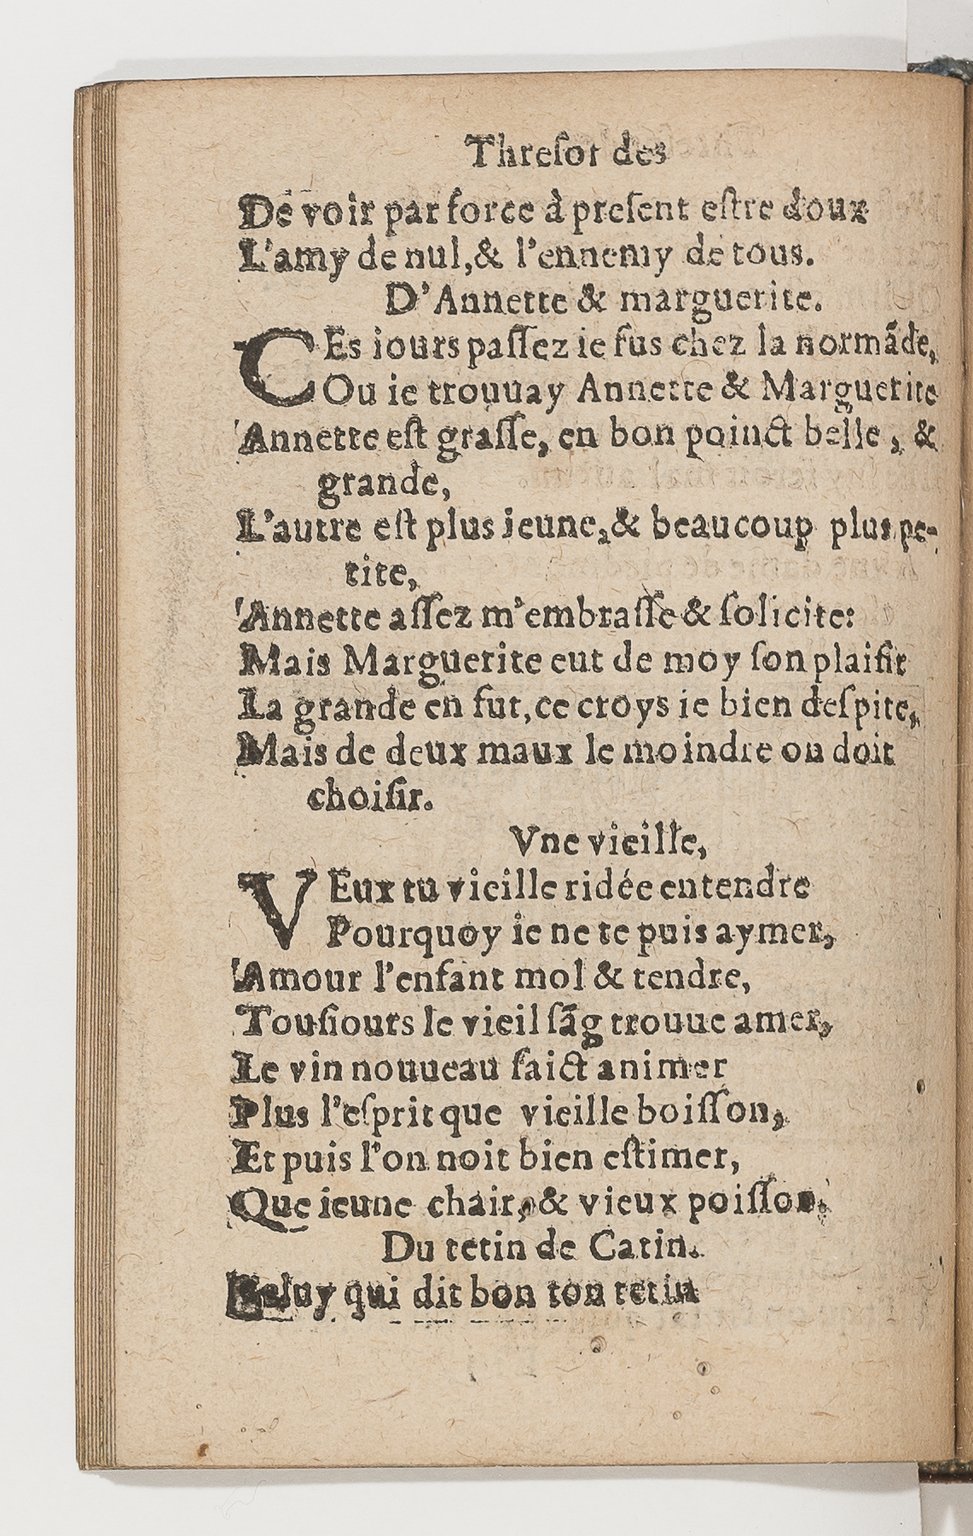 Threſor des
De voir par force à preſent eſtre doux
L'amy de nul,& l'ennemy de tous.
D'Annette & marguerite.
CEs iours paſſez ie fus chez la normãde,
Ou ie trouuay Annette & Marguerite
Annette eſt graſſe, en bon poinct belle, &
grande,
L'autre eſt plus ieune,& beaucoup plus pe-
tite,
Annette aſſez m'embraſſe & ſolicite:
Mais Marguerite eut de moy ſon plaiſir
La grande en fut,ce croys ie bien deſpite,
Mais de deux maux le moindre on doit
choiſir.
Vne vieille,
VEux tu vieille ridée entendre
Pourquoy ie ne te puis aymer,
Amour l'enfant mol & tendre,
Touſiours le vieil ſãg trouue amer,
Le vin nouueau faict animer
Plus l'eſprit que vieille boiſſon,
Et puis l'on noit bien eſtimer,
Que ieune chair, & vieux poiſſon.
Du tetin de Catin.
Celuy qui dit bon ton tetin